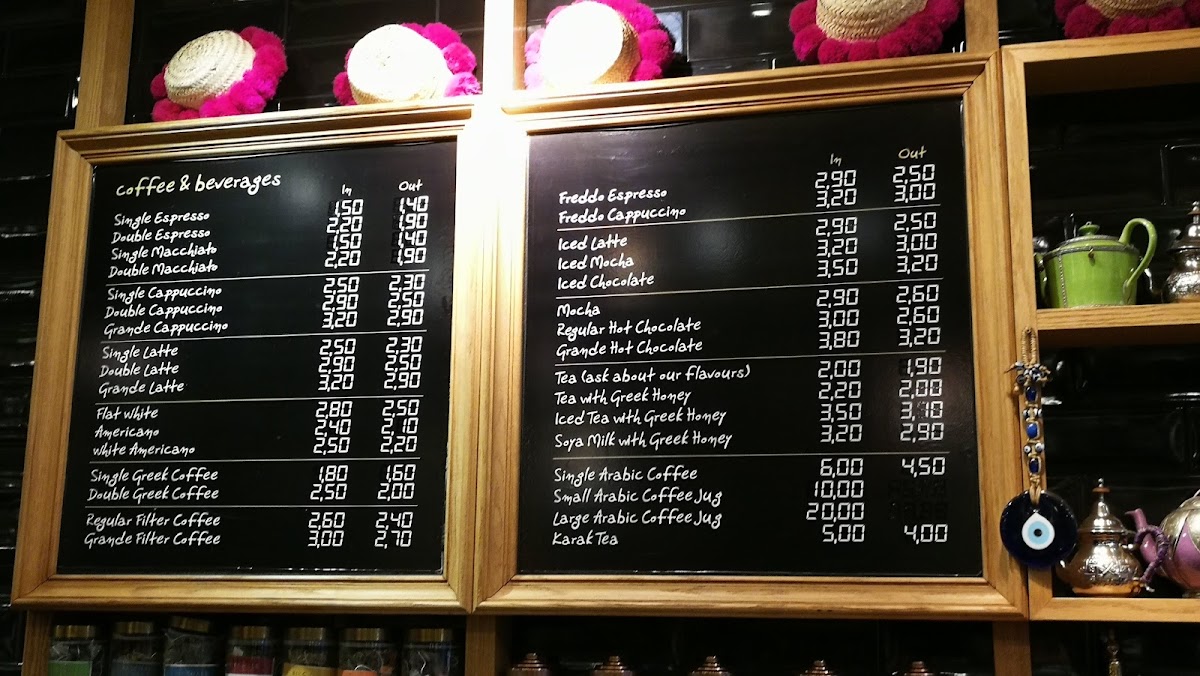 coffee & beverages In Out
Single Espresso 1,50 1,40
Double Espresso 2,20 1,90
Single Macchiato 1,50 1,40
Double Macchiato 2,20 1,90
Single Cappuccino 2,50 2,30
Double Cappuccino 2,90 2,50
Grande Cappuccino 3,20 2,90
Single Latte 2,50 2,30
Double Latte 2,90 2,50
Grande Latte 3,20 2,90
Flat White 2,80 2,50
Americano 2,40 2,10
White Americano 2,50 2,20
Single Greek Coffee 1,80 1,60
Double Greek Coffee 2,50 2,00
Regular Filter Coffee 2,60 2,40
Grande Filter Coffee 3,00 2,70
In Out
Freddo Espresso 2,90 2,50
Freddo Cappuccino 3,20 3,00
Iced Latte 2,90 2,50
Iced Mocha 3,20 3,00
Iced Chocolate 3,50 3,20
Mocha 2,90 2,60
Regular Hot Chocolate 3,00 2,60
Grande Hot Chocolate 3,80 3,20
Tea (ask about our flavours) 2,00 1,90
Tea with Greek Honey 2,20 2,00
Iced Tea with Greek Honey 3,50 3,10
Soya Milk with Greek Honey 3,20 2,90
Single Arabic Coffee 6,00 4,50
Small Arabic Coffee Jug 10,00
Large Arabic Coffee Jug 20,00
Karak Tea 5,00 4,00